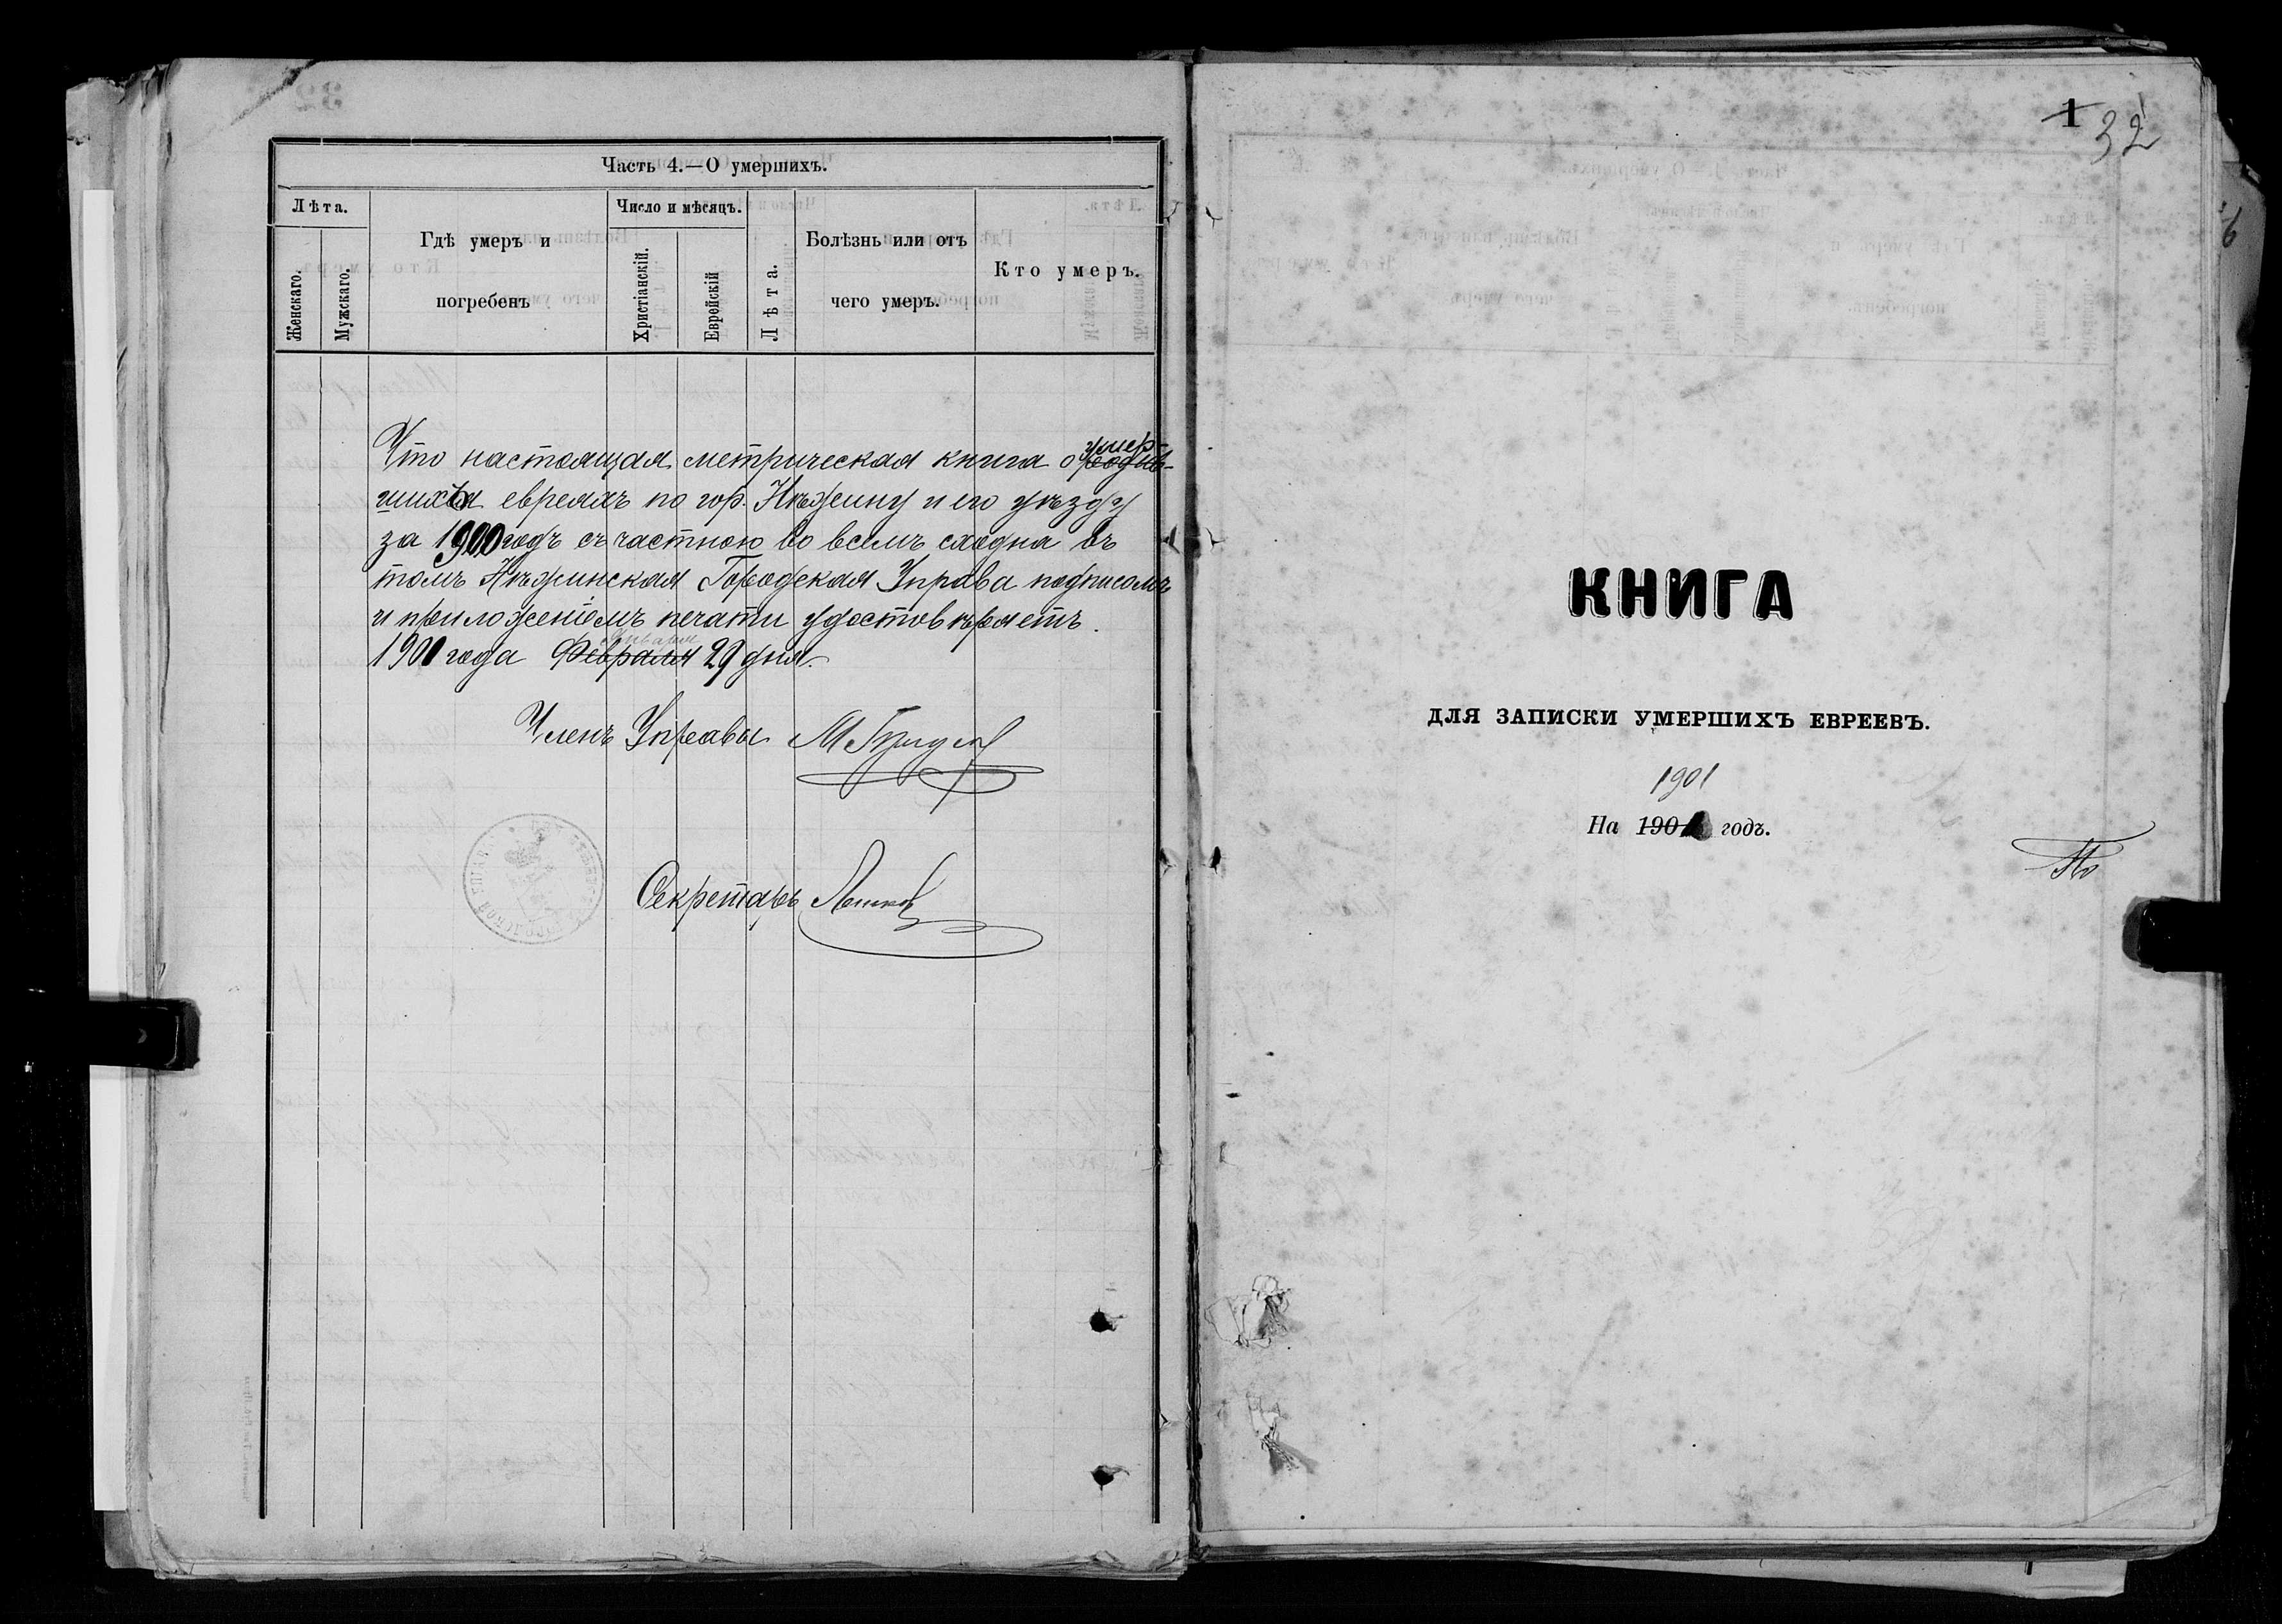 Часть 4.—О умершихъ.
Лѣта.
Женскаго.
Мужскаго.
Гдѣ умеръ и
погребенъ
Число и мѣсяцъ.
Христіанскій.
Еврейскій
Лѣта.
Болѣзнь или отъ
чего умеръ.
Кто умеръ.
умер-
Что настоящая метрическая книга о родив-
шихся евреяхъ по гор. Нѣжину и его уѣзду
за 1900 годъ съ частною во всемъ сходна въ
томъ Нѣжинская Городская Управа подписомъ
и приложеніемъ печати удостовѣряетъ.
Января
1901 года Февраля 29 дня.
Членъ Управы
Секретарь
1
32
КНИГА
ДЛЯ ЗАПИСКИ УМЕРШИХЪ ЕВРЕЕВЪ.
1901
На 190 годъ.